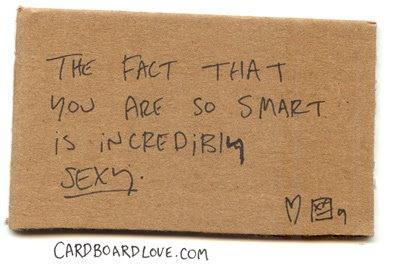 THE FACT THAT
YOU ARE SO SMART
iS iNCREDiBly
SEXy.
CARDBOARDLOVE.COM